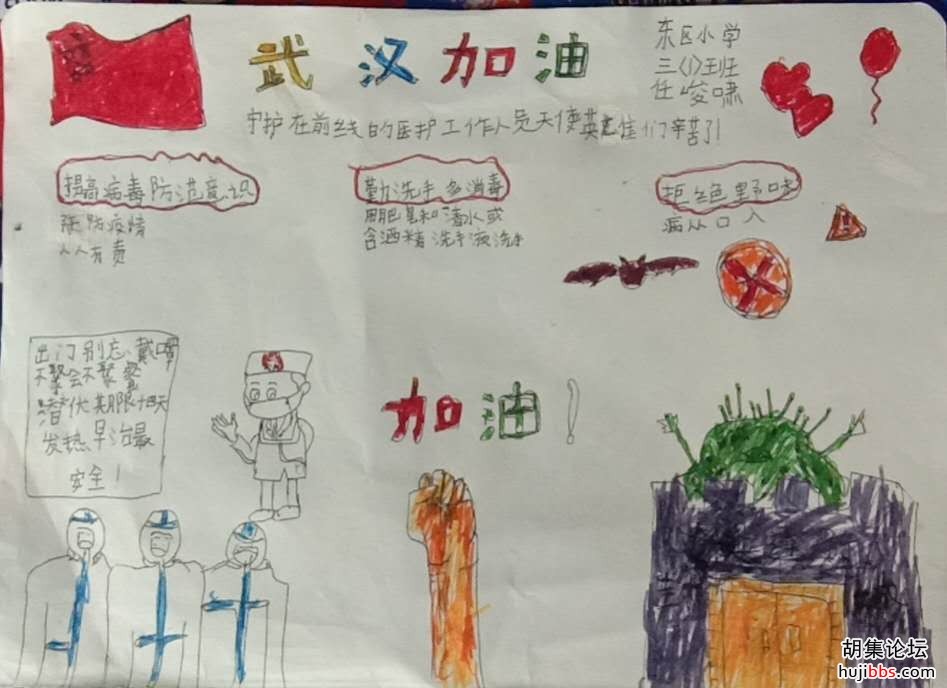 武汉加油
东区小学
三(1)班
任峻啸
守护在前线的医护工作人员天使英雄们辛苦了!
提高病毒防范意识
预防疫情
人人有责
勤洗手多消毒
用肥皂和清水或
含酒精洗手液洗手
拒绝野味
病从口入
出门别忘戴口罩
不聚会不聚餐
潜伏期限十四天
发热早治最
安全!
加油!
胡集论坛
hujibbs.com